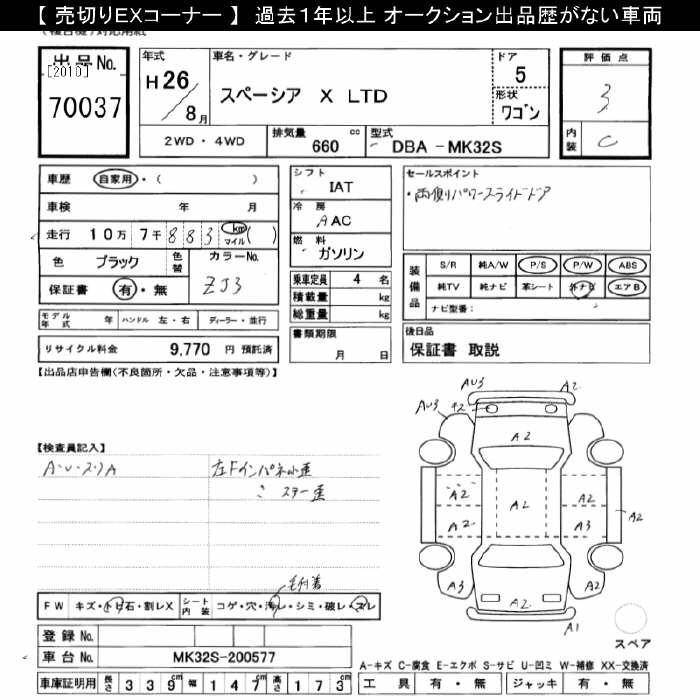 【 売切りEXコーナー 】 過去1年以上 オークション出品歴がない車両
出品No.
[2010]
70037
年式
H26/8月
車名・グレード
スペーシア X LTD
ドア
5
形状
ワゴン
評価点
3
内装
C
2WD・4WD
排気量 660 cc
型式 DBA-MK32S
車歴 自家用・( )
車検 年 月
走行 10万 7千 883 km マイル ( )
色 ブラック
色替
カラーNo.
ZJ3
保証書 有・無
シフト
IAT
冷房
AAC
燃料
ガソリン
乗車定員 4 名
積載量 kg
総重量 kg
書類期限
月 日
セールスポイント
・両側パワースライドドア
装備品
S/R 純A/W P/S P/W ABS
純TV 純ナビ 革シート 外ナビ エアB
ナビ型番:
モデル年式 年 ハンドル 左・右 ディーラー・並行
リサイクル料金 9,770 円 預託済
後日品
保証書 取説
【出品店申告欄(不良箇所・欠品・注意事項等)】
【検査員記入】
左Fインパネ小歪
〃 スター歪
AU3 A2
AU3 A2
A2
A2 A2 A2
A2 A3 A2
A3 A2 A2
A1
スペア
FW キズ・トビ石・割レX
シート内装 コゲ・穴・汚レ・シミ・破レ・スレ
毛付着
登録No.
車台No. MK32S-200577
車庫証明用 長さ 339 幅 147 高さ 173
A-キズ C-腐食 E-エクボ S-サビ U-凹ミ W-補修 XX-交換済
工具 有・無 ジャッキ 有・無